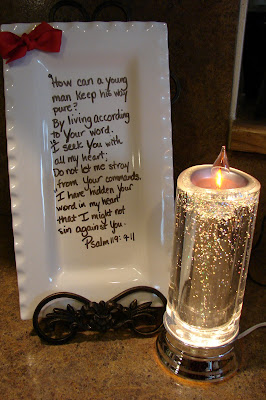 "How can a young
man keep his way
pure?
By living according
to Your word.
I seek You with
all my heart;
Do not let me stray
from Your commands.
I have hidden Your
word in my heart
that I might not
sin against You.
Psalm 119:9-11